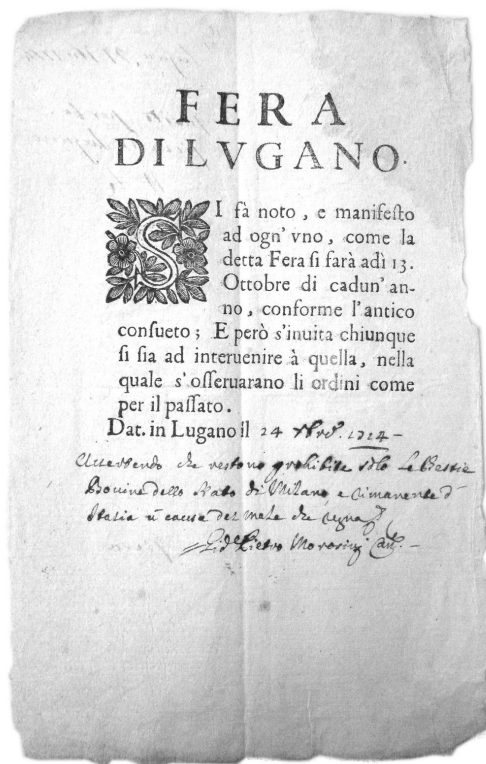 FERA
DI LVGANO.
SI fà noto, e manifeſto
ad ogn' vno, come la
detta Fera ſi farà adì 13.
Ottobre di cadun' an-
no, conforme l'antico
conſueto; E però s'inuita chiunque
ſi ſia ad interuenire à quella, nella
quale s'oſſeruarano li ordini come
per il paſſato.
Dat. in Lugano il 24 1714
che restono prohibite solo le Bestie
Bovine dello Stato di Milano, e rimanente d'
Italia causa del male che regna
Pietro Morosini